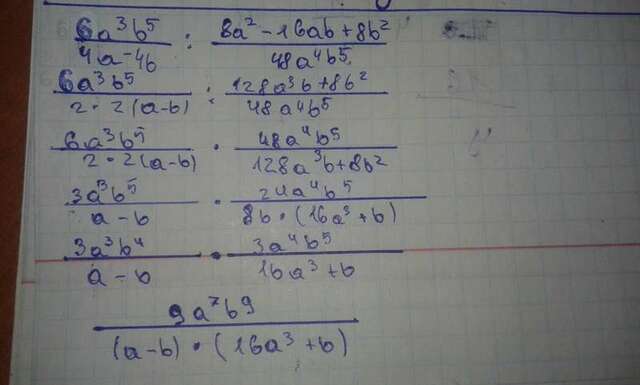 6a³b⁵/4a-4b : 8a²-16ab+8b²/48a⁴b⁵
6a³b⁵/2·2(a-b) : 128a³b+8b²/48a⁴b⁵
6a³b⁵/2·2(a-b) · 48a⁴b⁵/128a³b+8b²
3a³b⁵/a-b · 24a⁴b⁵/8b·(16a³+b)
3a³b⁴/a-b · 3a⁴b⁵/16a³+b
9a⁷b⁹/(a-b)·(16a³+b)